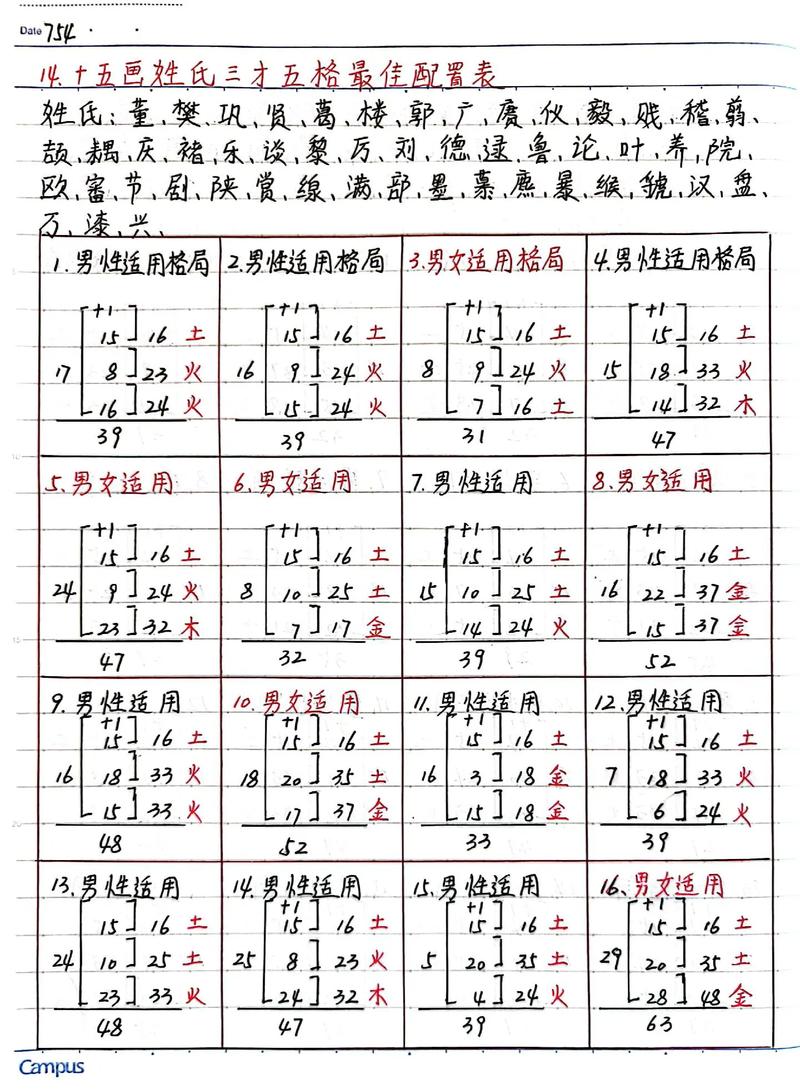 Date 754
14.十五画姓氏三才五格最佳配置表
姓氏:董、樊、巩、贤、葛、楼、郭、广、赓、仪、毅、贱、稽、翦、
颉、耦、庆、褚、乐、谈、黎、厉、刘、德、逯、鲁、论、叶、养、院、
欧、审、节、剧、陕、赏、缐、满、部、墨、慕、麃、暴、缑、虢、汉、盘、
万、漆、兴、
1.男性适用格局 2.男性适用格局 3.男女适用格局 4.男性适用格局
+1 +1 +1
15 16 土 15 16 土 15 16 土 15 16 土
17 8 23 火 16 9 24 火 8 9 24 火 15 18 33 火
16 24 火 15 24 火 7 16 土 14 32 木
39 39 31 47
5.男女适用 6.男女适用 7.男性适用 8.男女适用
+1 +1 +1 +1
15 16 土 15 16 土 15 16 土 15 16 土
24 9 24 火 8 10 25 土 15 10 25 土 16 22 37 金
23 32 木 7 17 金 14 24 火 15 37 金
47 32 39 52
9.男性适用 10.男女适用 11.男性适用 12.男性适用
+1 +1 +1 +1
15 16 土 15 16 土 15 16 土 15 16 土
16 18 33 火 18 20 35 土 16 3 18 金 7 18 33 火
15 33 火 17 37 金 15 18 金 6 24 火
48 52 33 39
13.男性适用 14.男性适用 15.男性适用 16.男女适用
+1 +1 +1
15 16 土 15 16 土 15 16 土 15 16 土
24 10 25 土 25 8 23 火 5 20 35 土 29 20 35 土
23 33 火 24 32 木 4 24 火 28 48 金
48 47 39 63
Campus